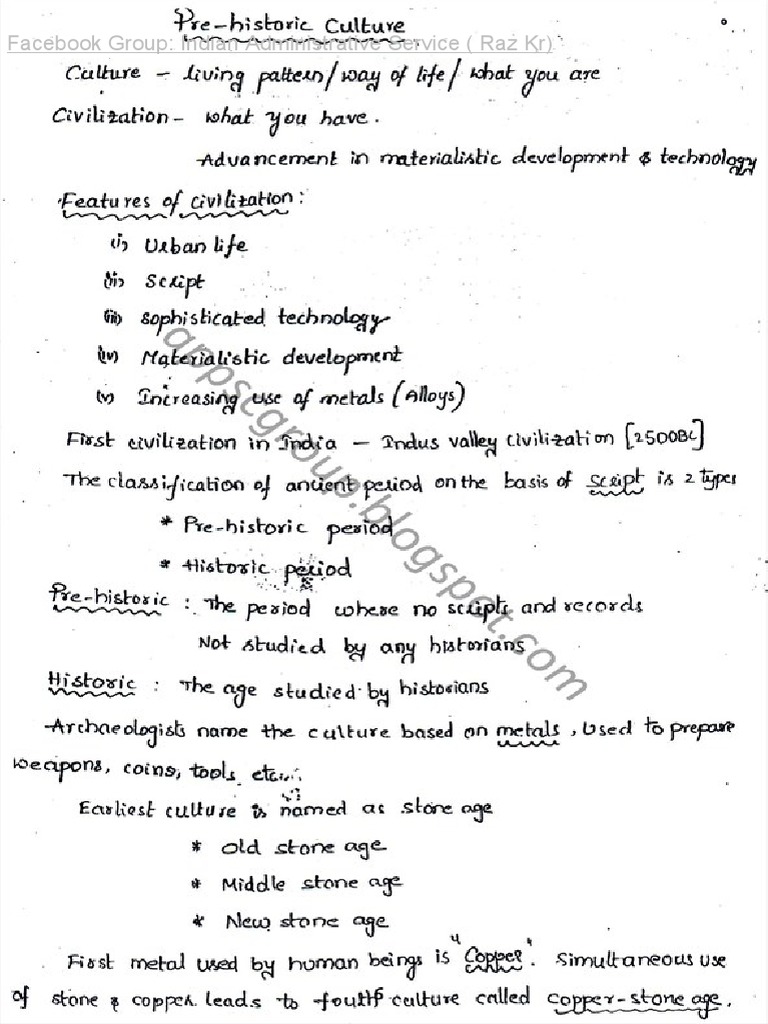 Pre-historic Culture
Facebook Group: Indian Administrative Service ( Raz Kr)
Culture - living pattern/way of life/ what you are
Civilization - what you have.
Advancement in materialistic development & technology
Features of civilization:
(i) Urban life
(ii) Script
(iii) Sophisticated technology
(iv) Materialistic development
(v) Increasing use of metals (Alloys)
First civilization in India - Indus valley civilization [2500BC]
The classification of ancient period on the basis of script is 2 types
* Pre-historic period
* Historic period
Pre-historic : The period where no scripts and records
Not studied by any historians
Historic : The age studied by historians
Archaeologists name the culture based on metals, Used to prepare
weapons, coins, tools etc...
Earliest culture is named as stone age
* Old stone age
* Middle stone age
* New stone age
First metal used by human beings is "Copper". Simultaneous use
of stone & copper leads to fouth culture called copper-stone age.
appscgroup.blogspot.com